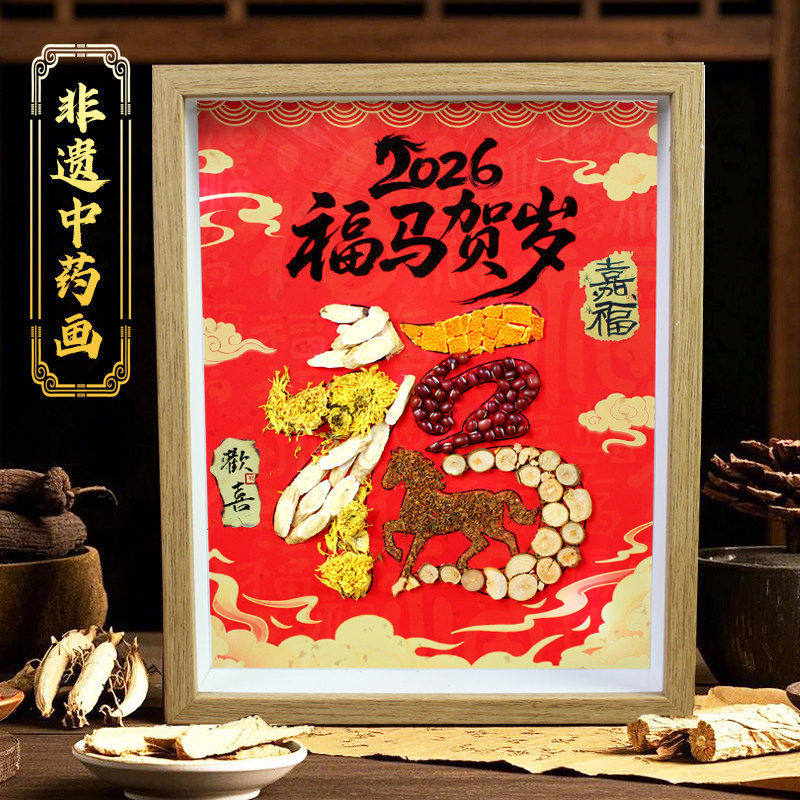 非遗中药画
2026
福马贺岁
嘉福
福
歡喜